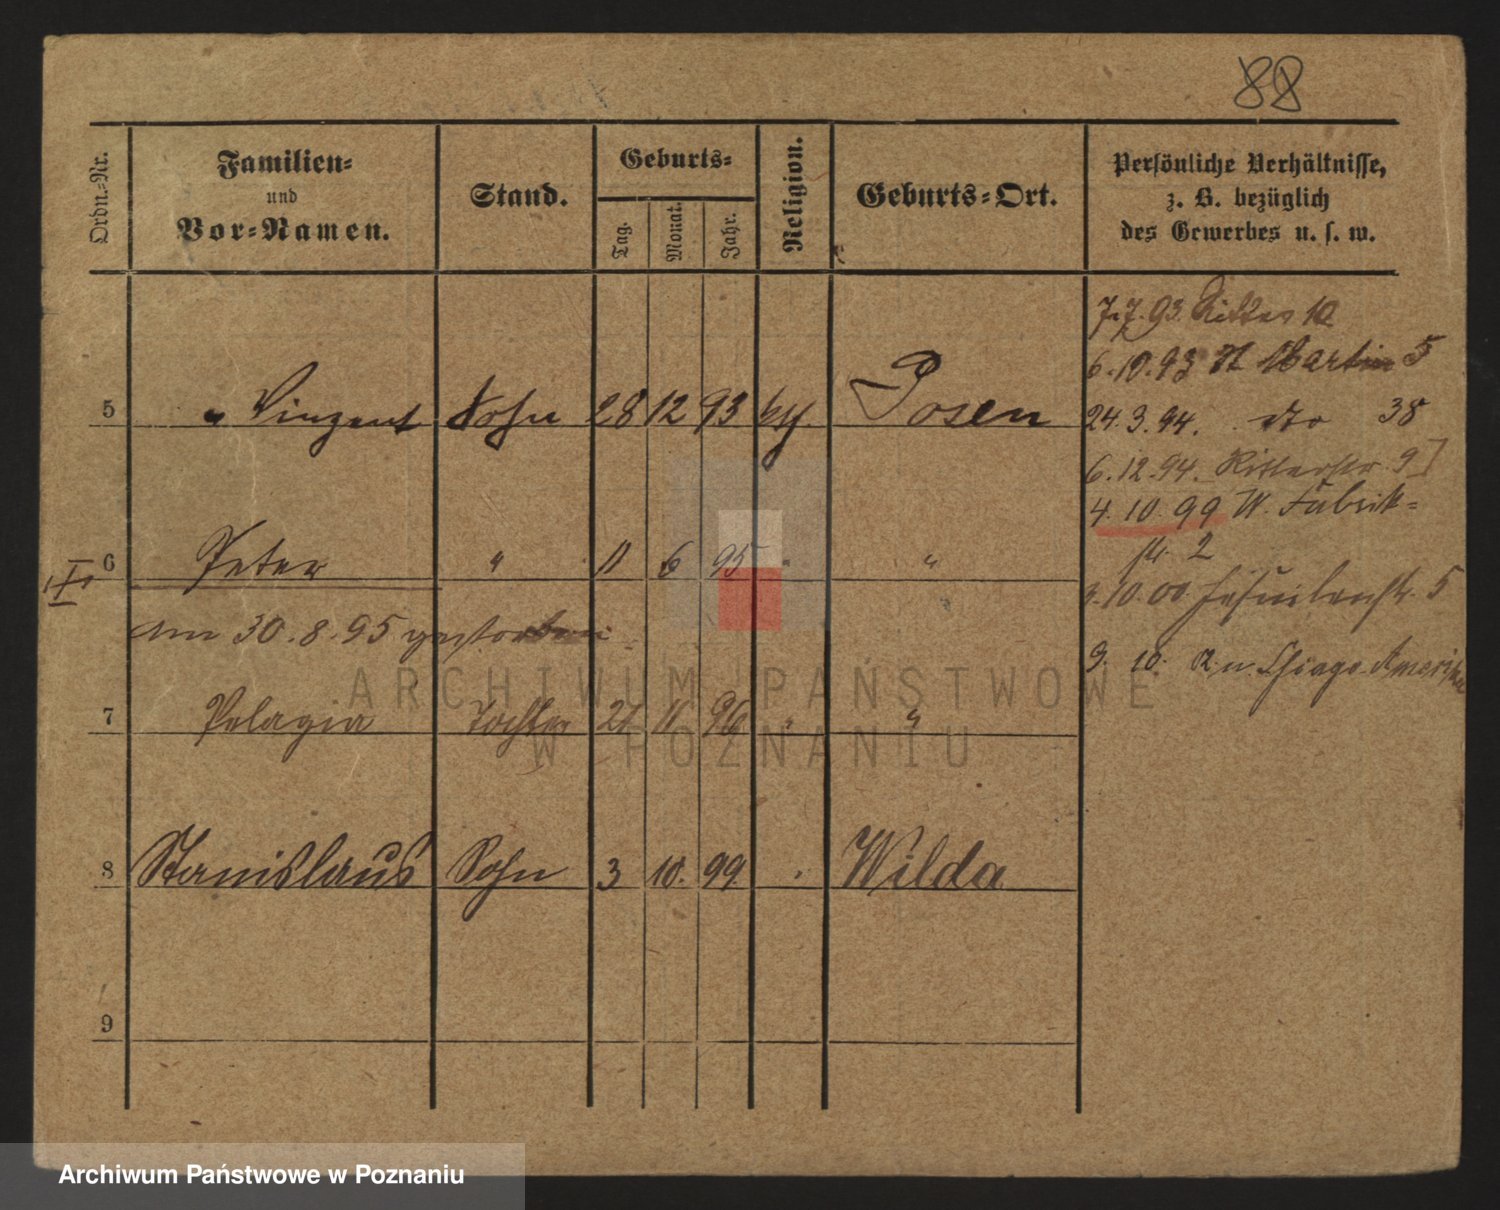 88
Ordn.-Nr.
Familien-
und
Vor-Namen.
Stand.
Geburts-
Tag.
Monat.
Jahr.
Religion.
Geburts-Ort.
Persönliche Verhältnisse,
z. B. bezüglich
des Gewerbes u. s. w.
7.7.93. Ritter 10
6.10.93 St Martin 5
5 " Vinzent Sohn 28 12 93 kth. Posen
24.3.94. dto 38
6.12.94. Ritterstr. 9]
4.10.99 W. Fabrik-
str. 2
6 Peter " 11 6 95 " "
10.00 Jesuitenstr. 5
am 30.8.95 gestorben
9. 10. R. n. Chicago Amerika
7 Pelagia Tochter 21 11 96 " "
8 Stanislaus Sohn 3 10. 99 Wilda
9
ARCHIWUM PAŃSTWOWE
W POZNANIU
Archiwum Państwowe w Poznaniu